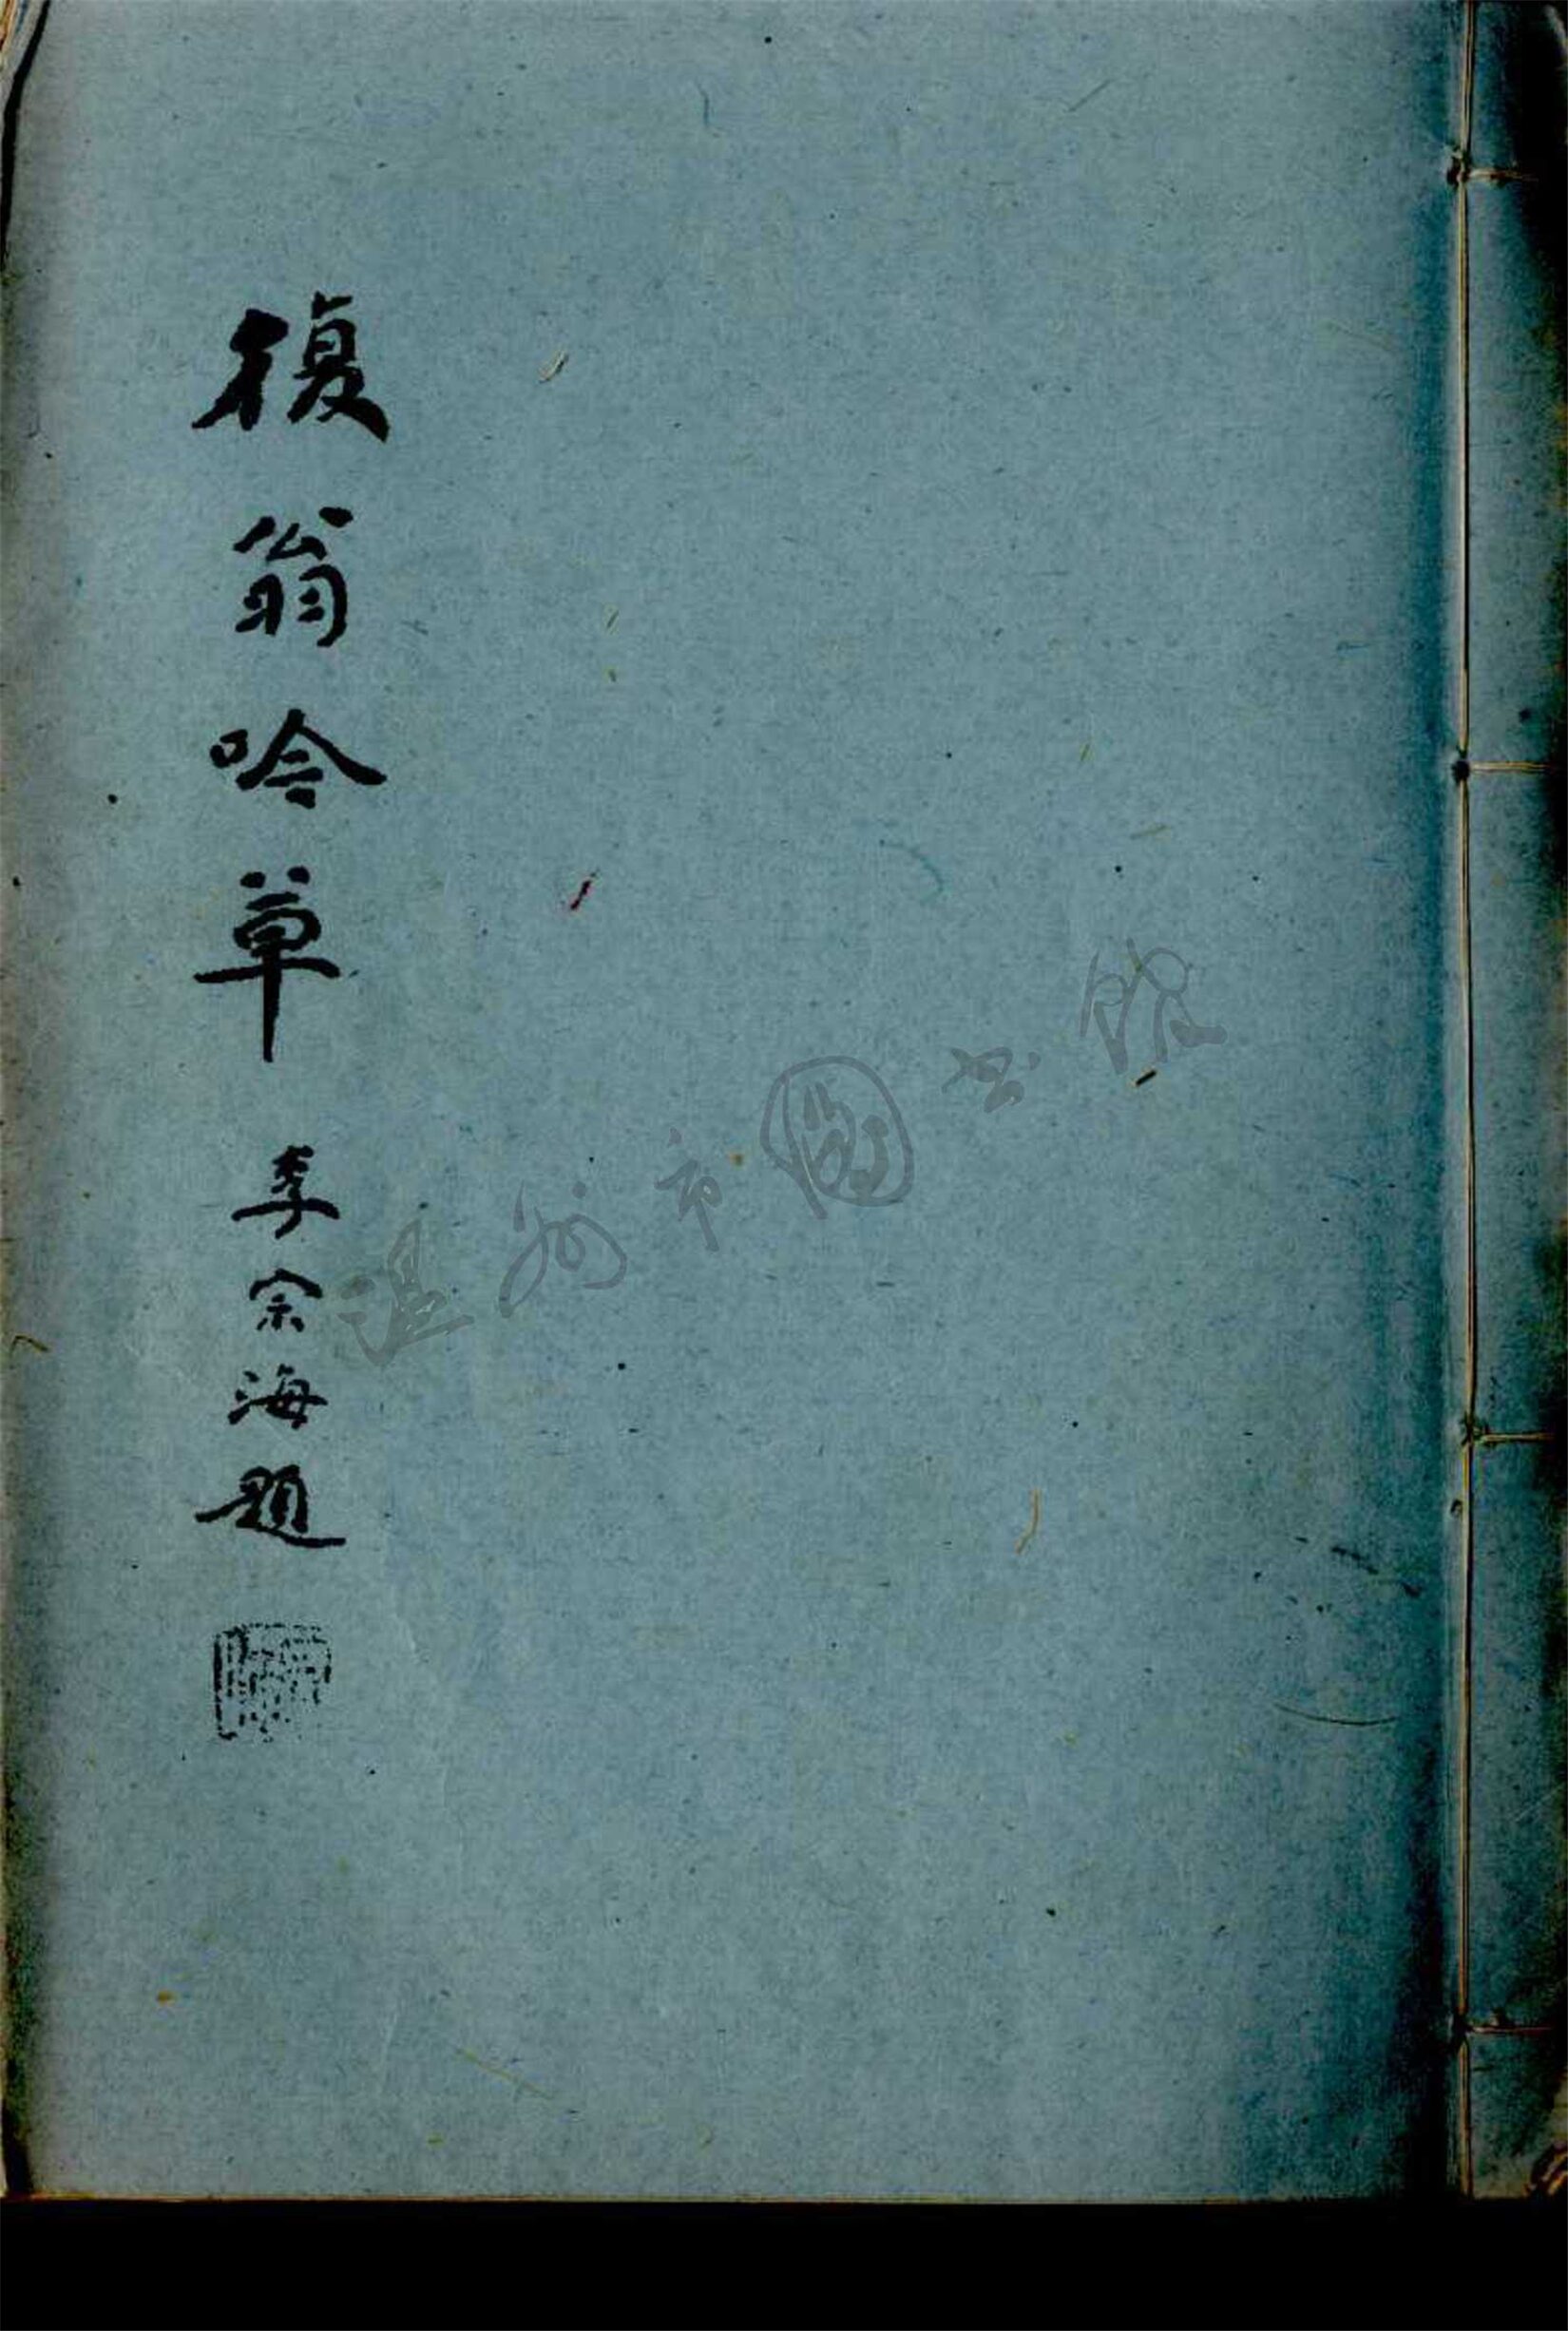 復翁吟草
李宗海題
温州市圖书館